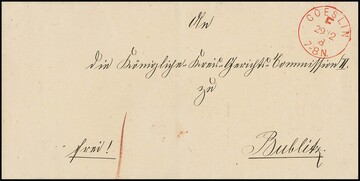 An
COESLIN
29 12
7-8N.
die Königliche Kreis-Gerichts-Commission II.
zu
frei!
Bublitz.